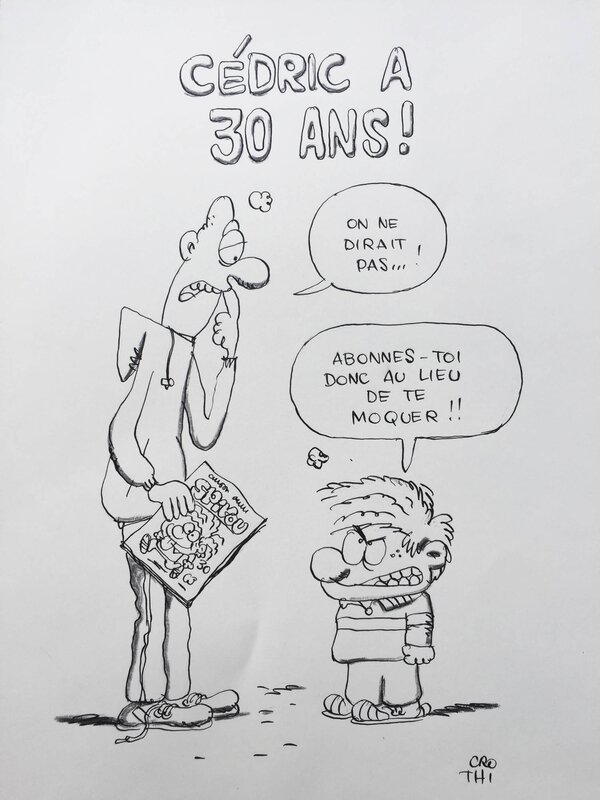 CÉDRIC A
30 ANS!
ON NE
DIRAIT
PAS...!
ABONNES-TOI
DONC AU LIEU
DE TE
MOQUER!!
SPIROU
CRO
THI